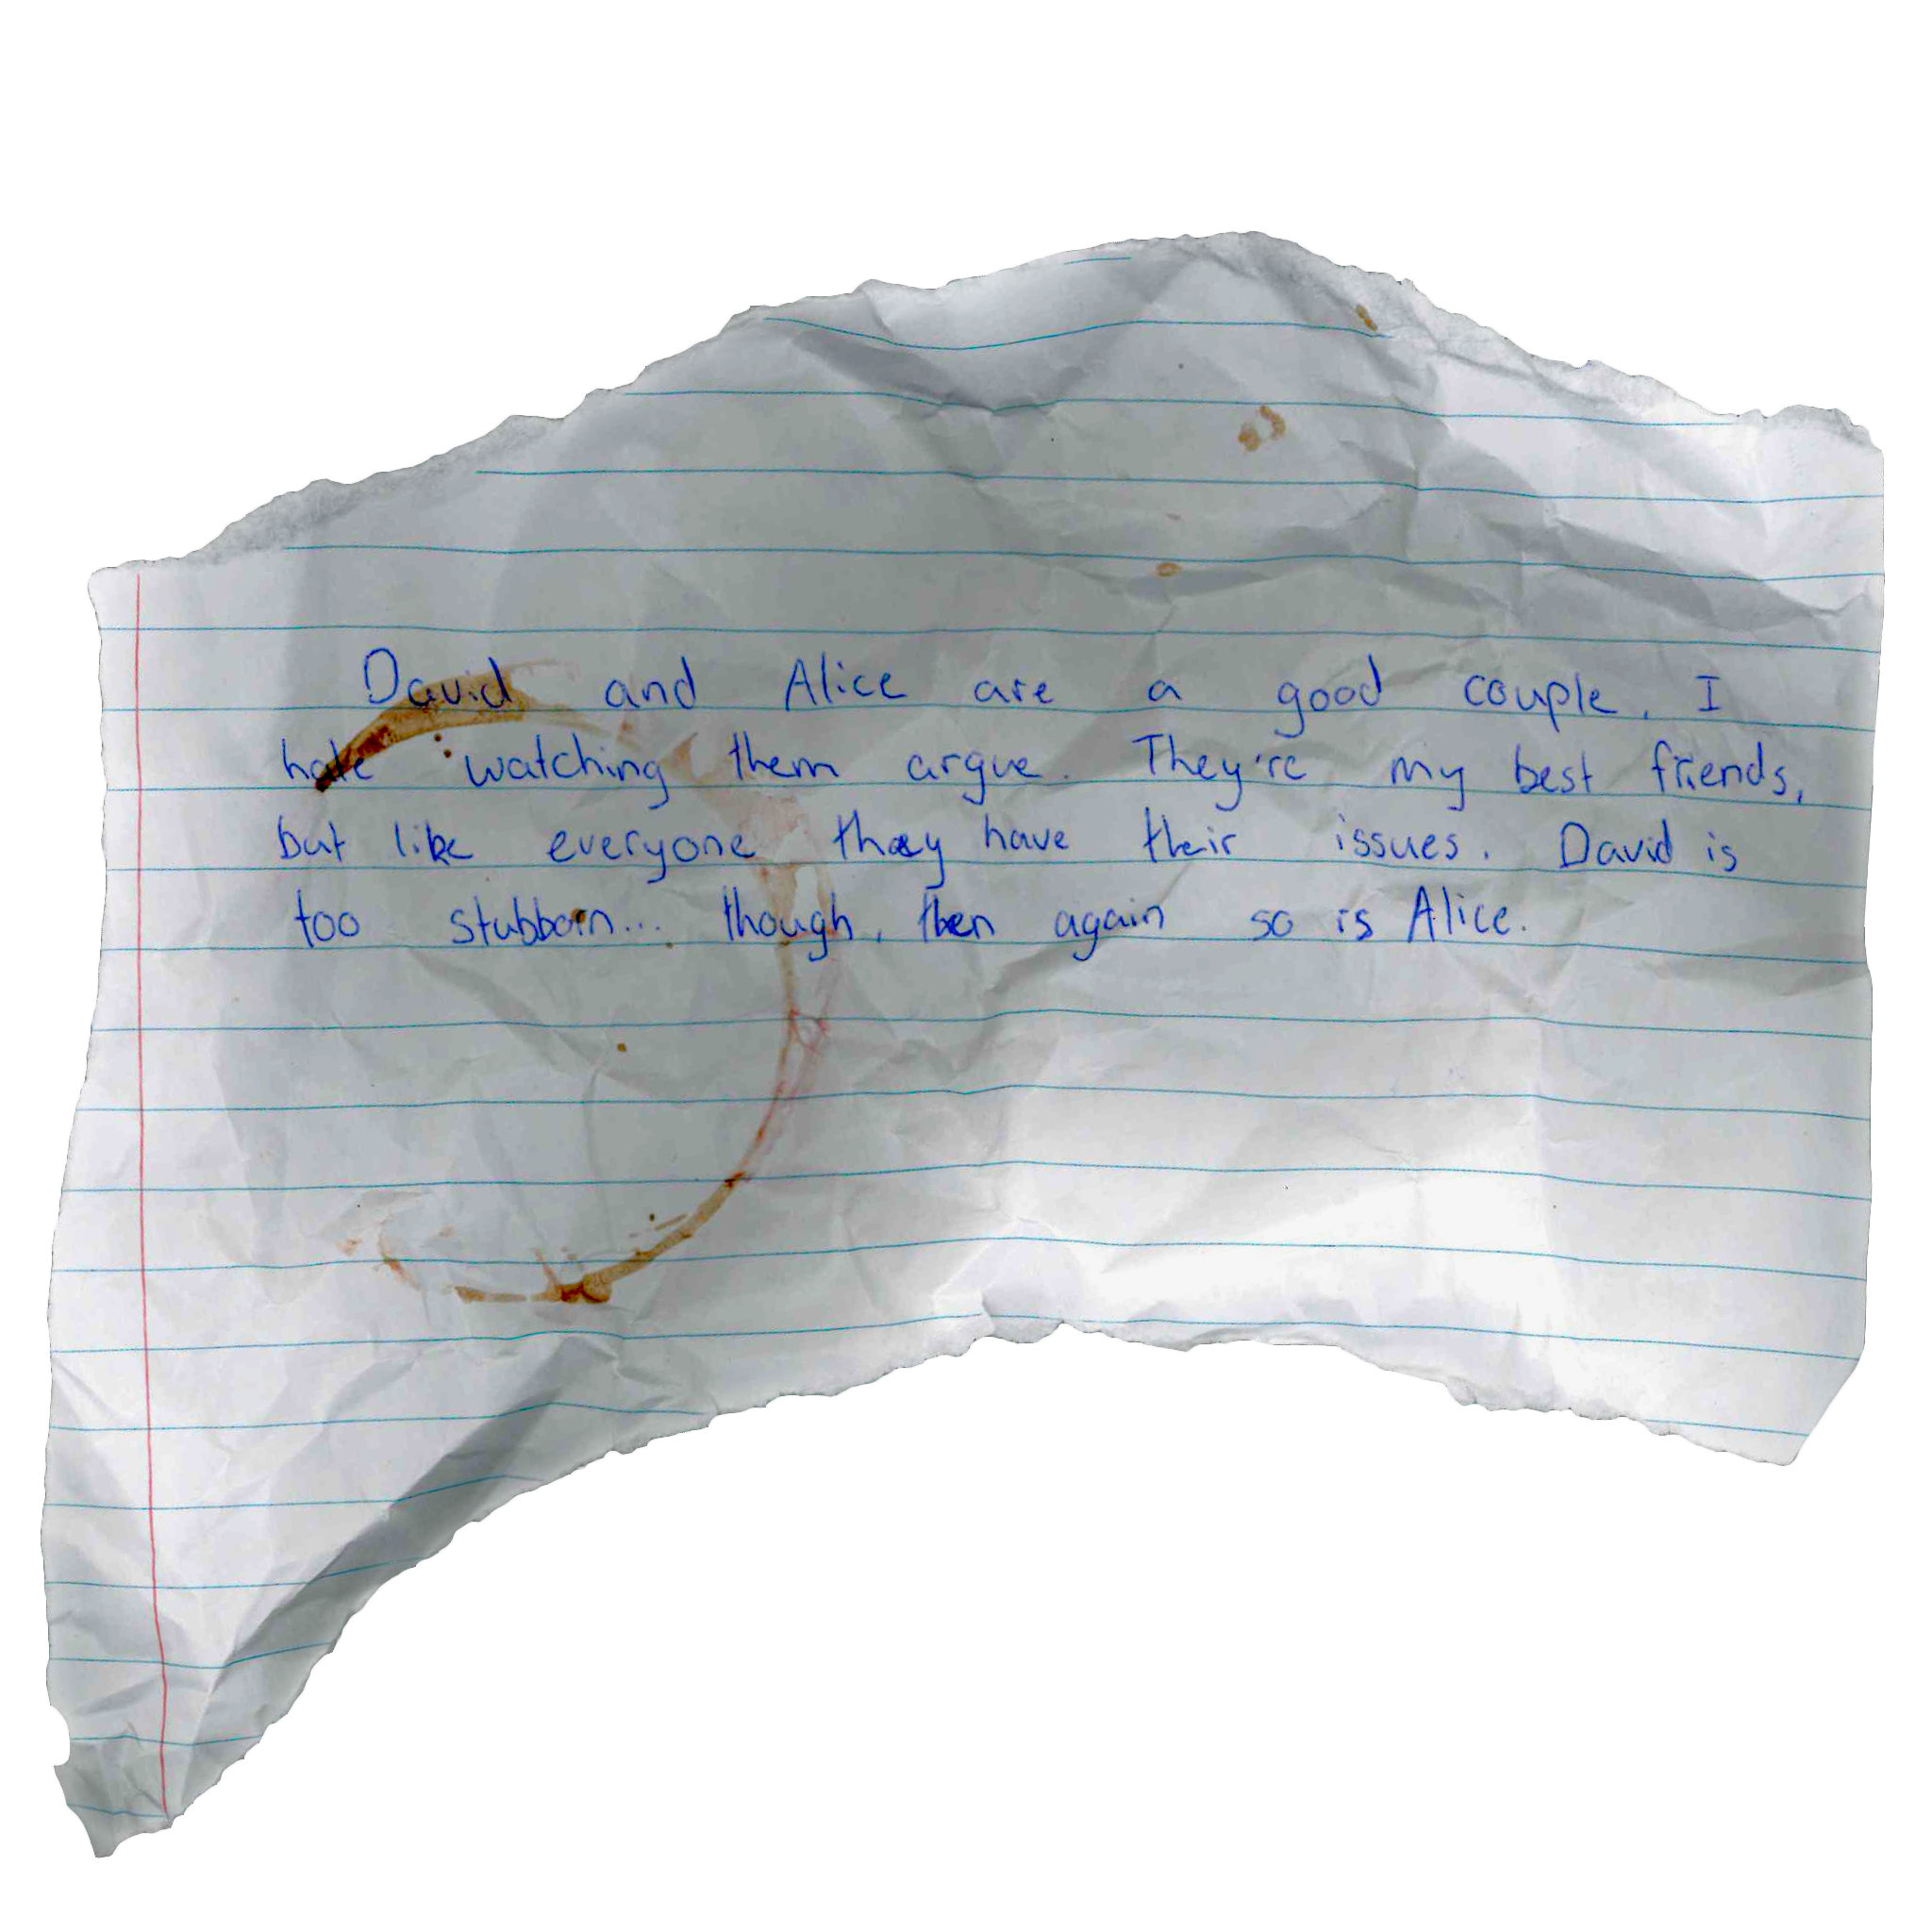 David and Alice are a good couple. I
hate watching them argue. They're my best friends,
but like everyone they have their issues. David is
too stubborn... though, then again so is Alice.